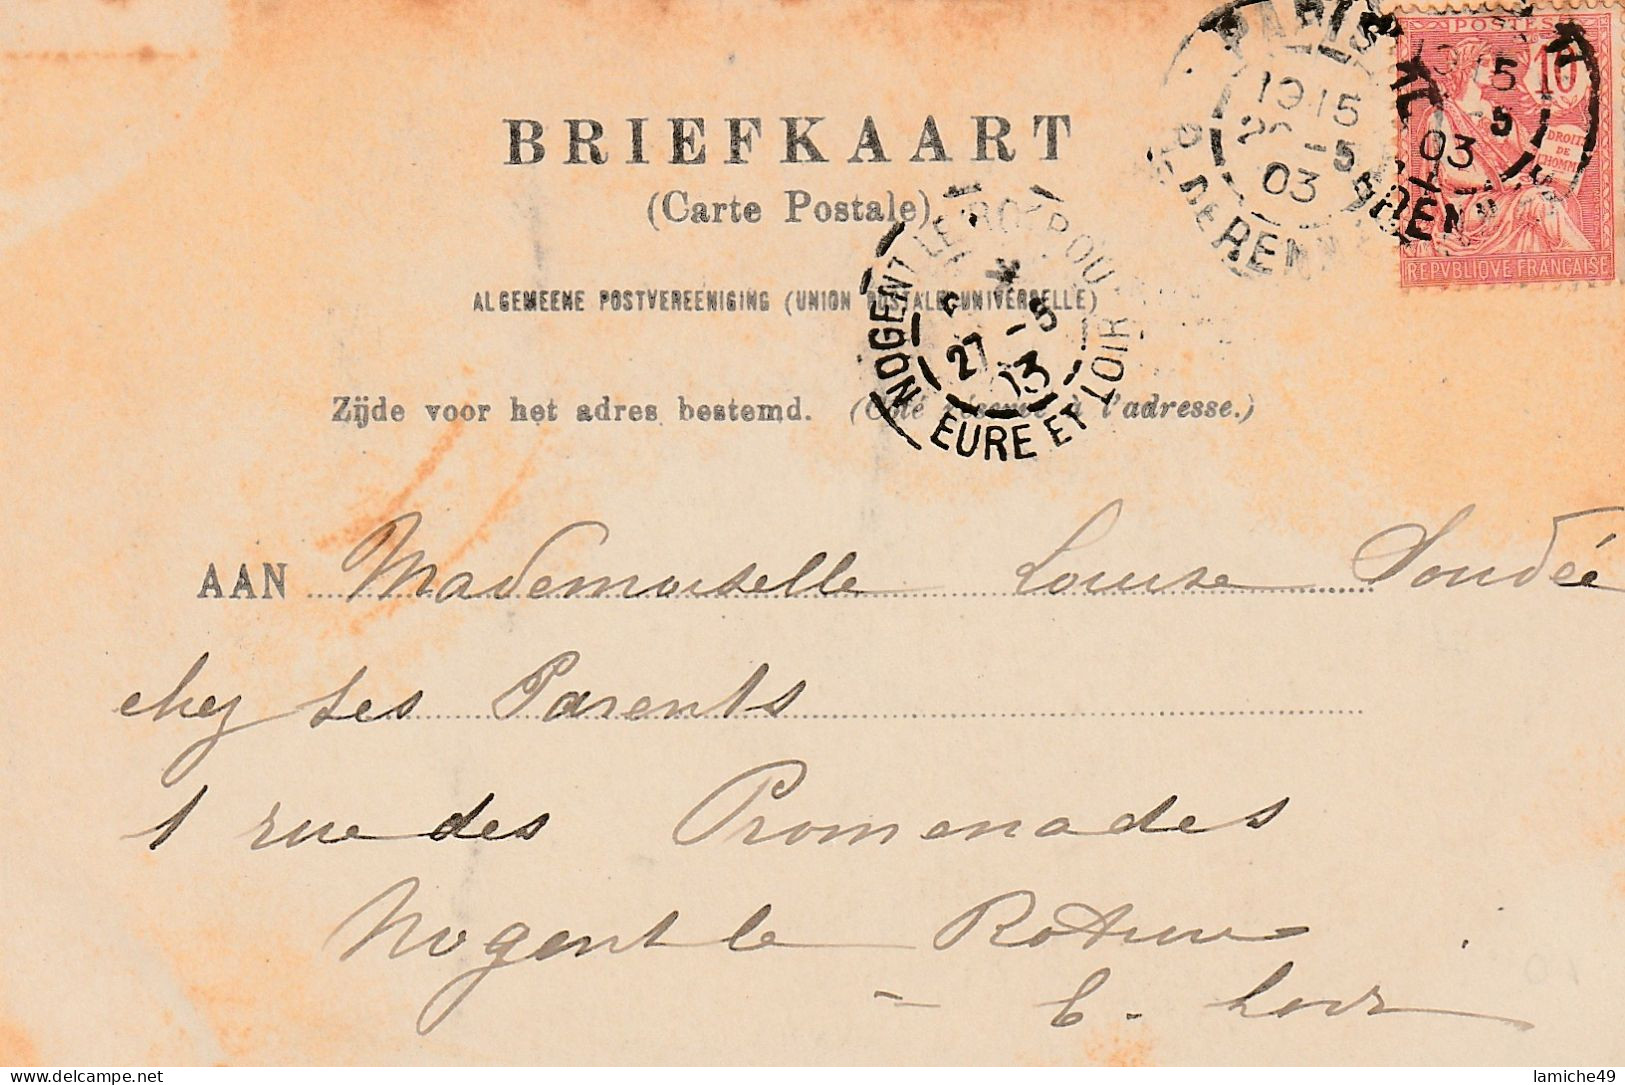 BRIEFKAART
(Carte Postale)
ALGEMEENE POSTVEREENIGING (UNION POSTALE UNIVERSELLE)
Zijde voor het adres bestemd. (Côté réservé à l'adresse.)
AAN Mademoiselle Louise
chez ses Parents
1 rue des Promenades
Nogent le Rotrou
E. Loir
POSTES
10
DROITS DE L'HOMME
REPVBLIQVE FRANÇAISE
PARIS
1915
-5
03
R. DE RENNES
NOGENT LE ROTROU
27 -5
03
EURE ET LOIR
lamiche49